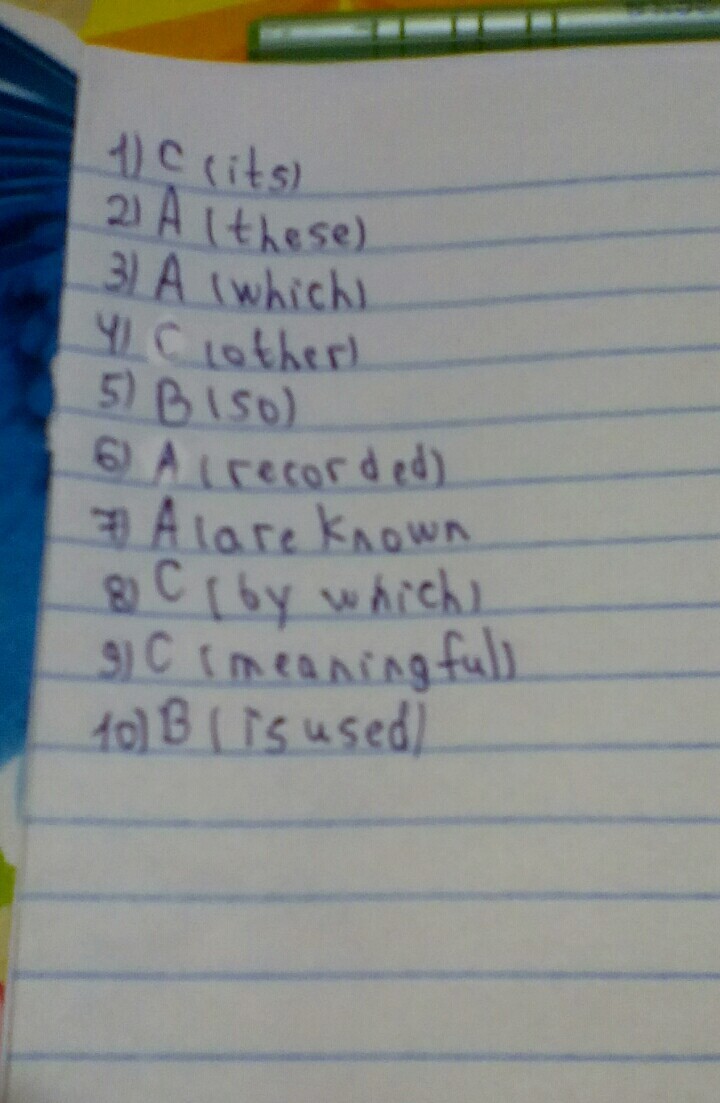 1) C (its)
2) A (these)
3) A (which)
4) C (other)
5) B (so)
6) A (recorded)
7) A (are known
8) C (by which)
9) C (meaningful)
10) B (is used)